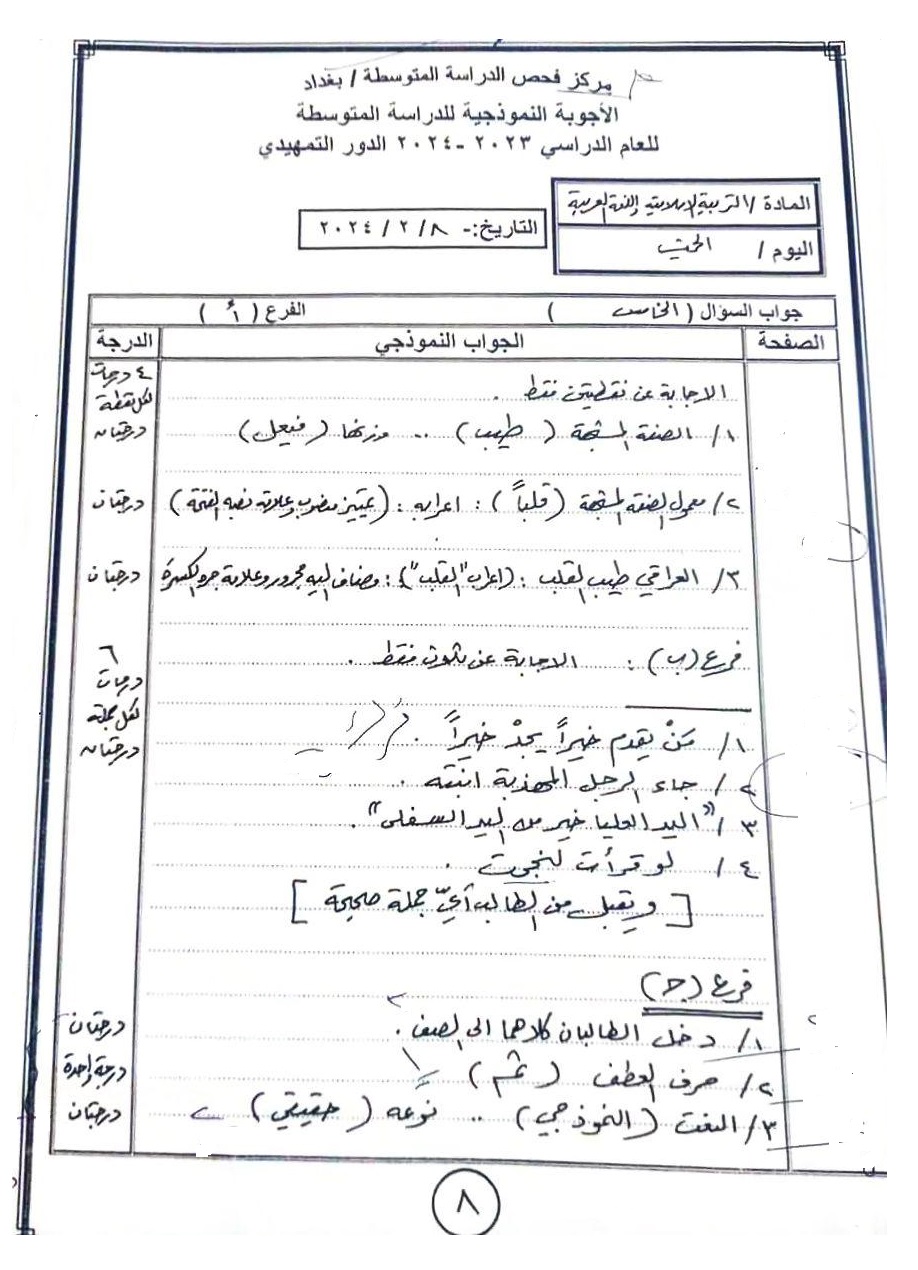 مركز فحص الدراسة المتوسطة / بغداد
الأجوبة النموذجية للدراسة المتوسطة
للعام الدراسي ٢٠٢٣ - ٢٠٢٤ الدور التمهيدي
المادة / التربية الإسلامية واللغة العربية
التاريخ:- ٨ / ٢ / ٢٠٢٤
اليوم / الخميس
جواب السؤال ( الخامس ) الفرع ( أ )
الصفحة الجواب النموذجي الدرجة
الاجابة عن نقطتين فقط . ٤ درجات
لكل نقطة
١/ الصفة المشبهة ( طيب ) .. وزنها ( فيعل ) درجتان
٢/ معمول الصفة المشبهة ( قلباً ) : اعرابه : ( تمييز منصوب وعلامة نصبه الفتحة ) درجتان
٣/ العراقي طيب القلب : ( اعراب "القلب" ) : مضاف اليه مجرور وعلامة جره الكسرة درجتان
فرع (ب) : الاجابة عن ثلاث فقط . ٦
درجات
لكل جملة
١/ مَنْ يقدم خيراً يجدْ خيراً . درجتان
٢/ جاء الرجل المهذبة ابنته .
٣/ "اليد العليا خير من اليد السفلى" .
٤/ لو قرأت لنجحت .
[ ويقبل من الطالب أيّ جملة صحيحة ]
فرع (جـ)
١/ دخل الطالبان كلاهما الى الصف . درجتان
٢/ حرف العطف ( ثم ) درجة واحدة
٣/ النعت ( النموذجي ) .. نوعه ( حقيقي ) درجتان
٨